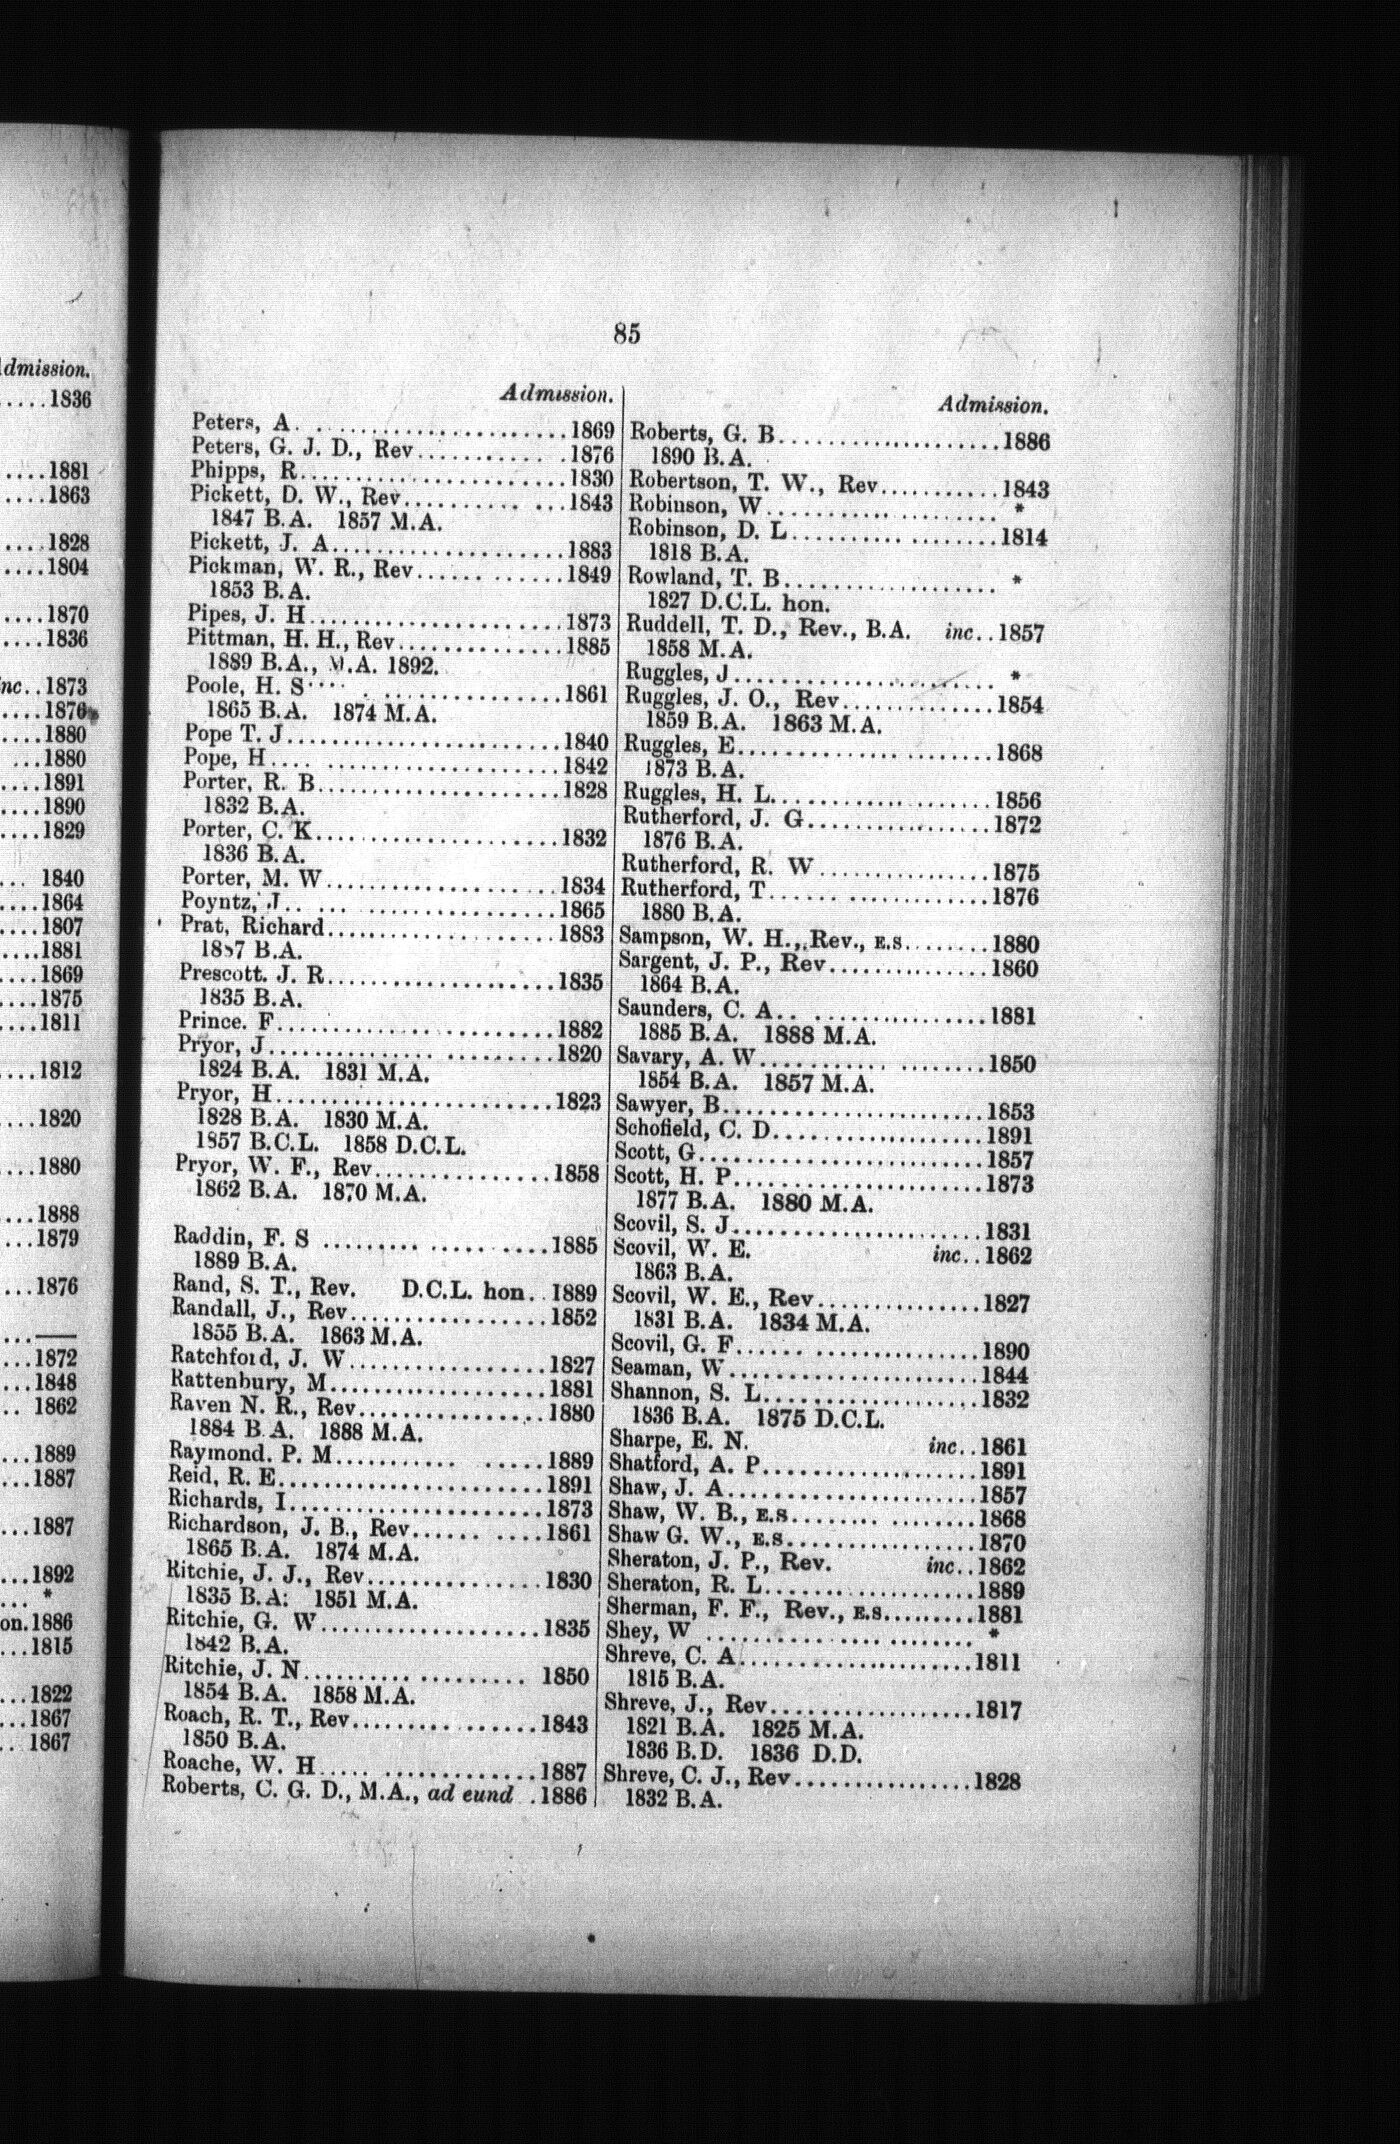 dmission.
....1836
....1881
....1863
....1828
....1804
....1870
....1836
nc..1873
....1876
....1880
...1880
....1891
....1890
....1829
... 1840
....1864
....1807
....1881
....1869
....1875
....1811
....1812
....1820
....1880
....1888
....1879
....1876
...——
....1872
....1848
.. 1862
....1889
....1887
....1887
....1892
... *
on.1886
....1815
....1822
....1867
.. 1867
85
Admission.
Peters, A. ......................1869
Peters, G. J. D., Rev............1876
Phipps, R........................1830
Pickett, D. W., Rev.......... ...1843
1847 B.A. 1857 M.A.
Pickett, J. A....................1883
Pickman, W. R., Rev..............1849
1853 B.A.
Pipes, J. H......................1873
Pittman, H. H., Rev..............1885
1889 B.A., M.A. 1892.
Poole, H. S.... . ...............1861
1865 B.A. 1874 M.A.
Pope T. J........................1840
Pope, H.... .....................1842
Porter, R. B.....................1828
1832 B.A.
Porter, C. K.....................1832
1836 B.A.
Porter, M. W.....................1834
Poyntz, J.. ... .................1865
Prat, Richard....................1883
1887 B.A.
Prescott. J. R...................1835
1835 B.A.
Prince. F........................1882
Pryor, J............... .........1820
1824 B.A. 1831 M.A.
Pryor, H.........................1823
1828 B.A. 1830 M.A.
1857 B.C.L. 1858 D.C.L.
Pryor, W. F., Rev................1858
1862 B.A. 1870 M.A.
Raddin, F. S ......... ..........1885
1889 B.A.
Rand, S. T., Rev. D.C.L. hon. .1889
Randall, J., Rev.................1852
1855 B.A. 1863 M.A.
Ratchford, J. W..................1827
Rattenbury, M....................1881
Raven N. R., Rev.................1880
1884 B.A. 1888 M.A.
Raymond. P. M........... .....1889
Reid, R. E.......................1891
Richards, I......................1873
Richardson, J. B., Rev...... ....1861
1865 B.A. 1874 M.A.
Ritchie, J. J., Rev..............1830
1835 B.A: 1851 M.A.
Ritchie, G. W....................1835
1842 B.A.
Ritchie, J. N........... ....... 1850
1854 B.A. 1858 M.A.
Roach, R. T., Rev................1843
1850 B.A.
Roache, W. H..... ...............1887
Roberts, C. G. D., M.A., ad eund .1886
Admission.
Roberts, G. B....................1886
1890 B.A.
Robertson, T. W., Rev...........1843
Robinson, W...................... *
Robinson, D. L...................1814
1818 B.A.
Rowland, T. B.................... *
1827 D.C.L. hon.
Ruddell, T. D., Rev., B.A. inc..1857
1858 M.A.
Ruggles, J....................... *
Ruggles, J. O., Rev..............1854
1859 B.A. 1863 M.A.
Ruggles, E.......................1868
1873 B.A.
Ruggles, H. L....................1856
Rutherford, J. G.................1872
1876 B.A.
Rutherford, R. W ................1875
Rutherford, T....................1876
1880 B.A.
Sampson, W. H., Rev., E.S........1880
Sargent, J. P., Rev..............1860
1864 B.A.
Saunders, C. A.. ................1881
1885 B.A. 1888 M.A.
Savary, A. W........... ........1850
1854 B.A. 1857 M.A.
Sawyer, B........................1853
Schofield, C. D..................1891
Scott, G.........................1857
Scott, H. P......................1873
1877 B.A. 1880 M.A.
Scovil, S. J.....................1831
Scovil, W. E. inc..1862
1863 B.A.
Scovil, W. E., Rev...............1827
1831 B.A. 1834 M.A.
Scovil, G. F...... ..............1890
Seaman, W........................1844
Shannon, S. L....................1832
1836 B.A. 1875 D.C.L.
Sharpe, E. N. inc..1861
Shatford, A. P...................1891
Shaw, J. A.......................1857
Shaw, W. B., E.S........ ........1868
Shaw G. W., E.S..................1870
Sheraton, J. P., Rev. inc..1862
Sheraton, R. L...................1889
Sherman, F. F., Rev., E.S.........1881
Shey, W ............ .... ........ *
Shreve, C. A.....................1811
1815 B.A.
Shreve, J., Rev..................1817
1821 B.A. 1825 M.A.
1836 B.D. 1836 D.D.
Shreve, C. J., Rev...............1828
1832 B.A.